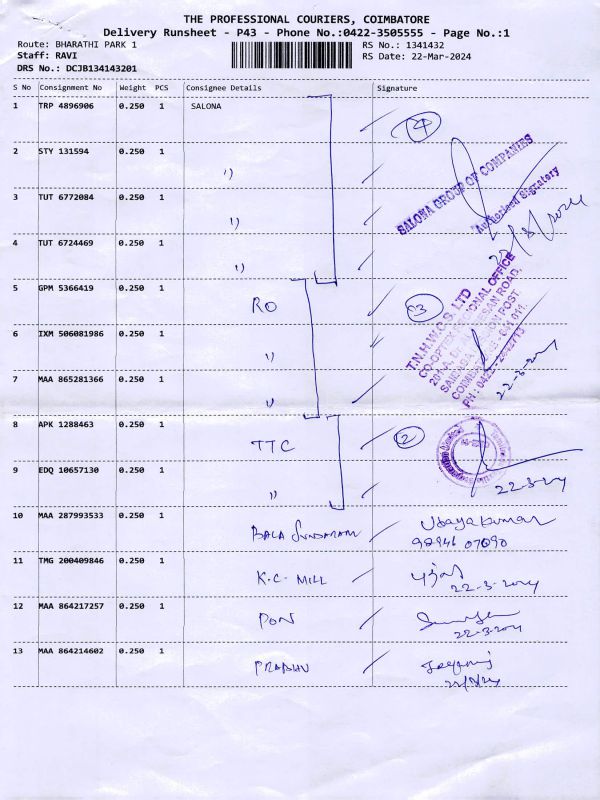 THE PROFESSIONAL COURIERS, COIMBATORE
Delivery Runsheet - P43 - Phone No.:0422-3505555 - Page No.:1
Route: BHARATHI PARK 1 RS No.: 1341432
Staff: RAVI RS Date: 22-Mar-2024
DRS No.: DCJB134143201
S No Consignment No Weight PCS Consignee Details Signature
1 TRP 4896906 0.250 1 SALONA 4
SALONA GROUP OF COMPANIES
2 STY 131594 0.250 1 ")
Authorised Signatory
3 TUT 6772084 0.250 1 ")
4 TUT 6724469 0.250 1 ")
5 GPM 5366419 0.250 1 RO 03
T.N.H.W.C.S. LTD
CO-OPTEX REGIONAL OFFICE
6 IXM 506081986 0.250 1 ")
7 MAA 865281366 0.250 1 "
22-3-2024
8 APK 1288463 0.250 1 TTC 2
9 EDQ 10657130 0.250 1 ")
22-3-2024
10 MAA 287993533 0.250 1 BALA SUNDARAM Udayakumar
11 TMG 200409846 0.250 1 K.C. MILL
22-3-2024
12 MAA 864217257 0.250 1 PON
22-3-2024
13 MAA 864214602 0.250 1 PRABHU